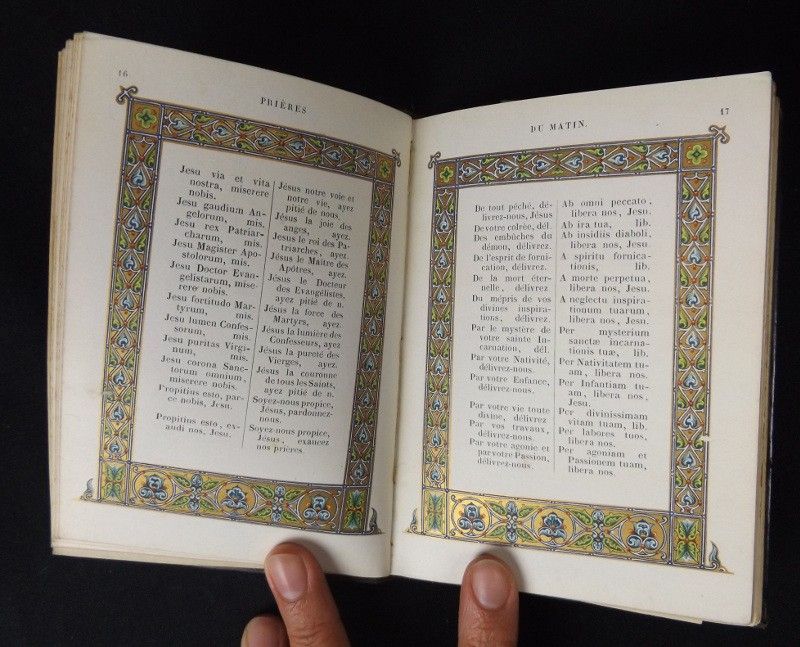 16
PRIÈRES
Jesu via et vita
nostra, miserere
nobis.
Jesu gaudium An-
gelorum, mis.
Jesu rex Patriar-
charum, mis.
Jesu Magister Apo-
stolorum, mis.
Jesu Doctor Evan-
gelistarum, mise-
rere nobis.
Jesu fortitudo Mar-
tyrum, mis.
Jesu lumen Confes-
sorum, mis.
Jesu puritas Virgi-
num, mis.
Jesu corona Sanc-
torum omnium,
miserere nobis.
Propitius esto, par-
ce nobis, Jesu.
Propitius esto, ex-
audi nos, Jesu.
Jésus notre voie et
notre vie, ayez
pitié de nous.
Jésus la joie des
anges, ayez.
Jésus le roi des Pa-
triarches, ayez.
Jésus le Maître des
Apôtres, ayez.
Jésus le Docteur
des Evangélistes,
ayez pitié de n.
Jésus la force des
Martyrs, ayez.
Jésus la lumière des
Confesseurs, ayez.
Jésus la pureté des
Vierges, ayez.
Jésus la couronne
de tous les Saints,
ayez pitié de n.
Soyez-nous propice,
Jésus, pardonnez-
nous.
Soyez-nous propice,
Jésus, exaucez
nos prières.
17
DU MATIN.
De tout péché, dé-
livrez-nous, Jésus
De votre colrèe, dél.
Des embûches du
démon, délivrez.
De l'esprit de forni-
cation, délivrez.
De la mort éter-
nelle, délivrez
Du mépris de vos
divines inspira-
tions, délivrez.
Par le mystère de
votre sainte In-
carnation, dél.
Par votre Nativité,
délivrez-nous.
Par votre Enfance,
délivrez-nous.
Par votre vie toute
divine, délivrez
Par vos travaux,
délivrez-nous.
Par votre agonie et
par votre Passion,
délivrez-nous
Ab omni peccato,
libera nos, Jesu.
Ab ira tua, lib.
Ab insidiis diaboli,
libera nos, Jesu.
A spiritu fornica-
tionis, lib.
A morte perpetua,
libera nos, Jesu.
A neglectu inspira-
tionum tuarum,
libera nos, Jesu.
Per mysterium
sanctæ incarna-
tionis tuæ, lib.
Per Nativitatem tu-
am, libera nos.
Per Infantiam tu-
am, libera nos,
Jesu.
Per divinissimam
vitam tuam, lib.
Per labores tuos,
libera nos.
Per agoniam et
Passionem tuam,
libera nos.